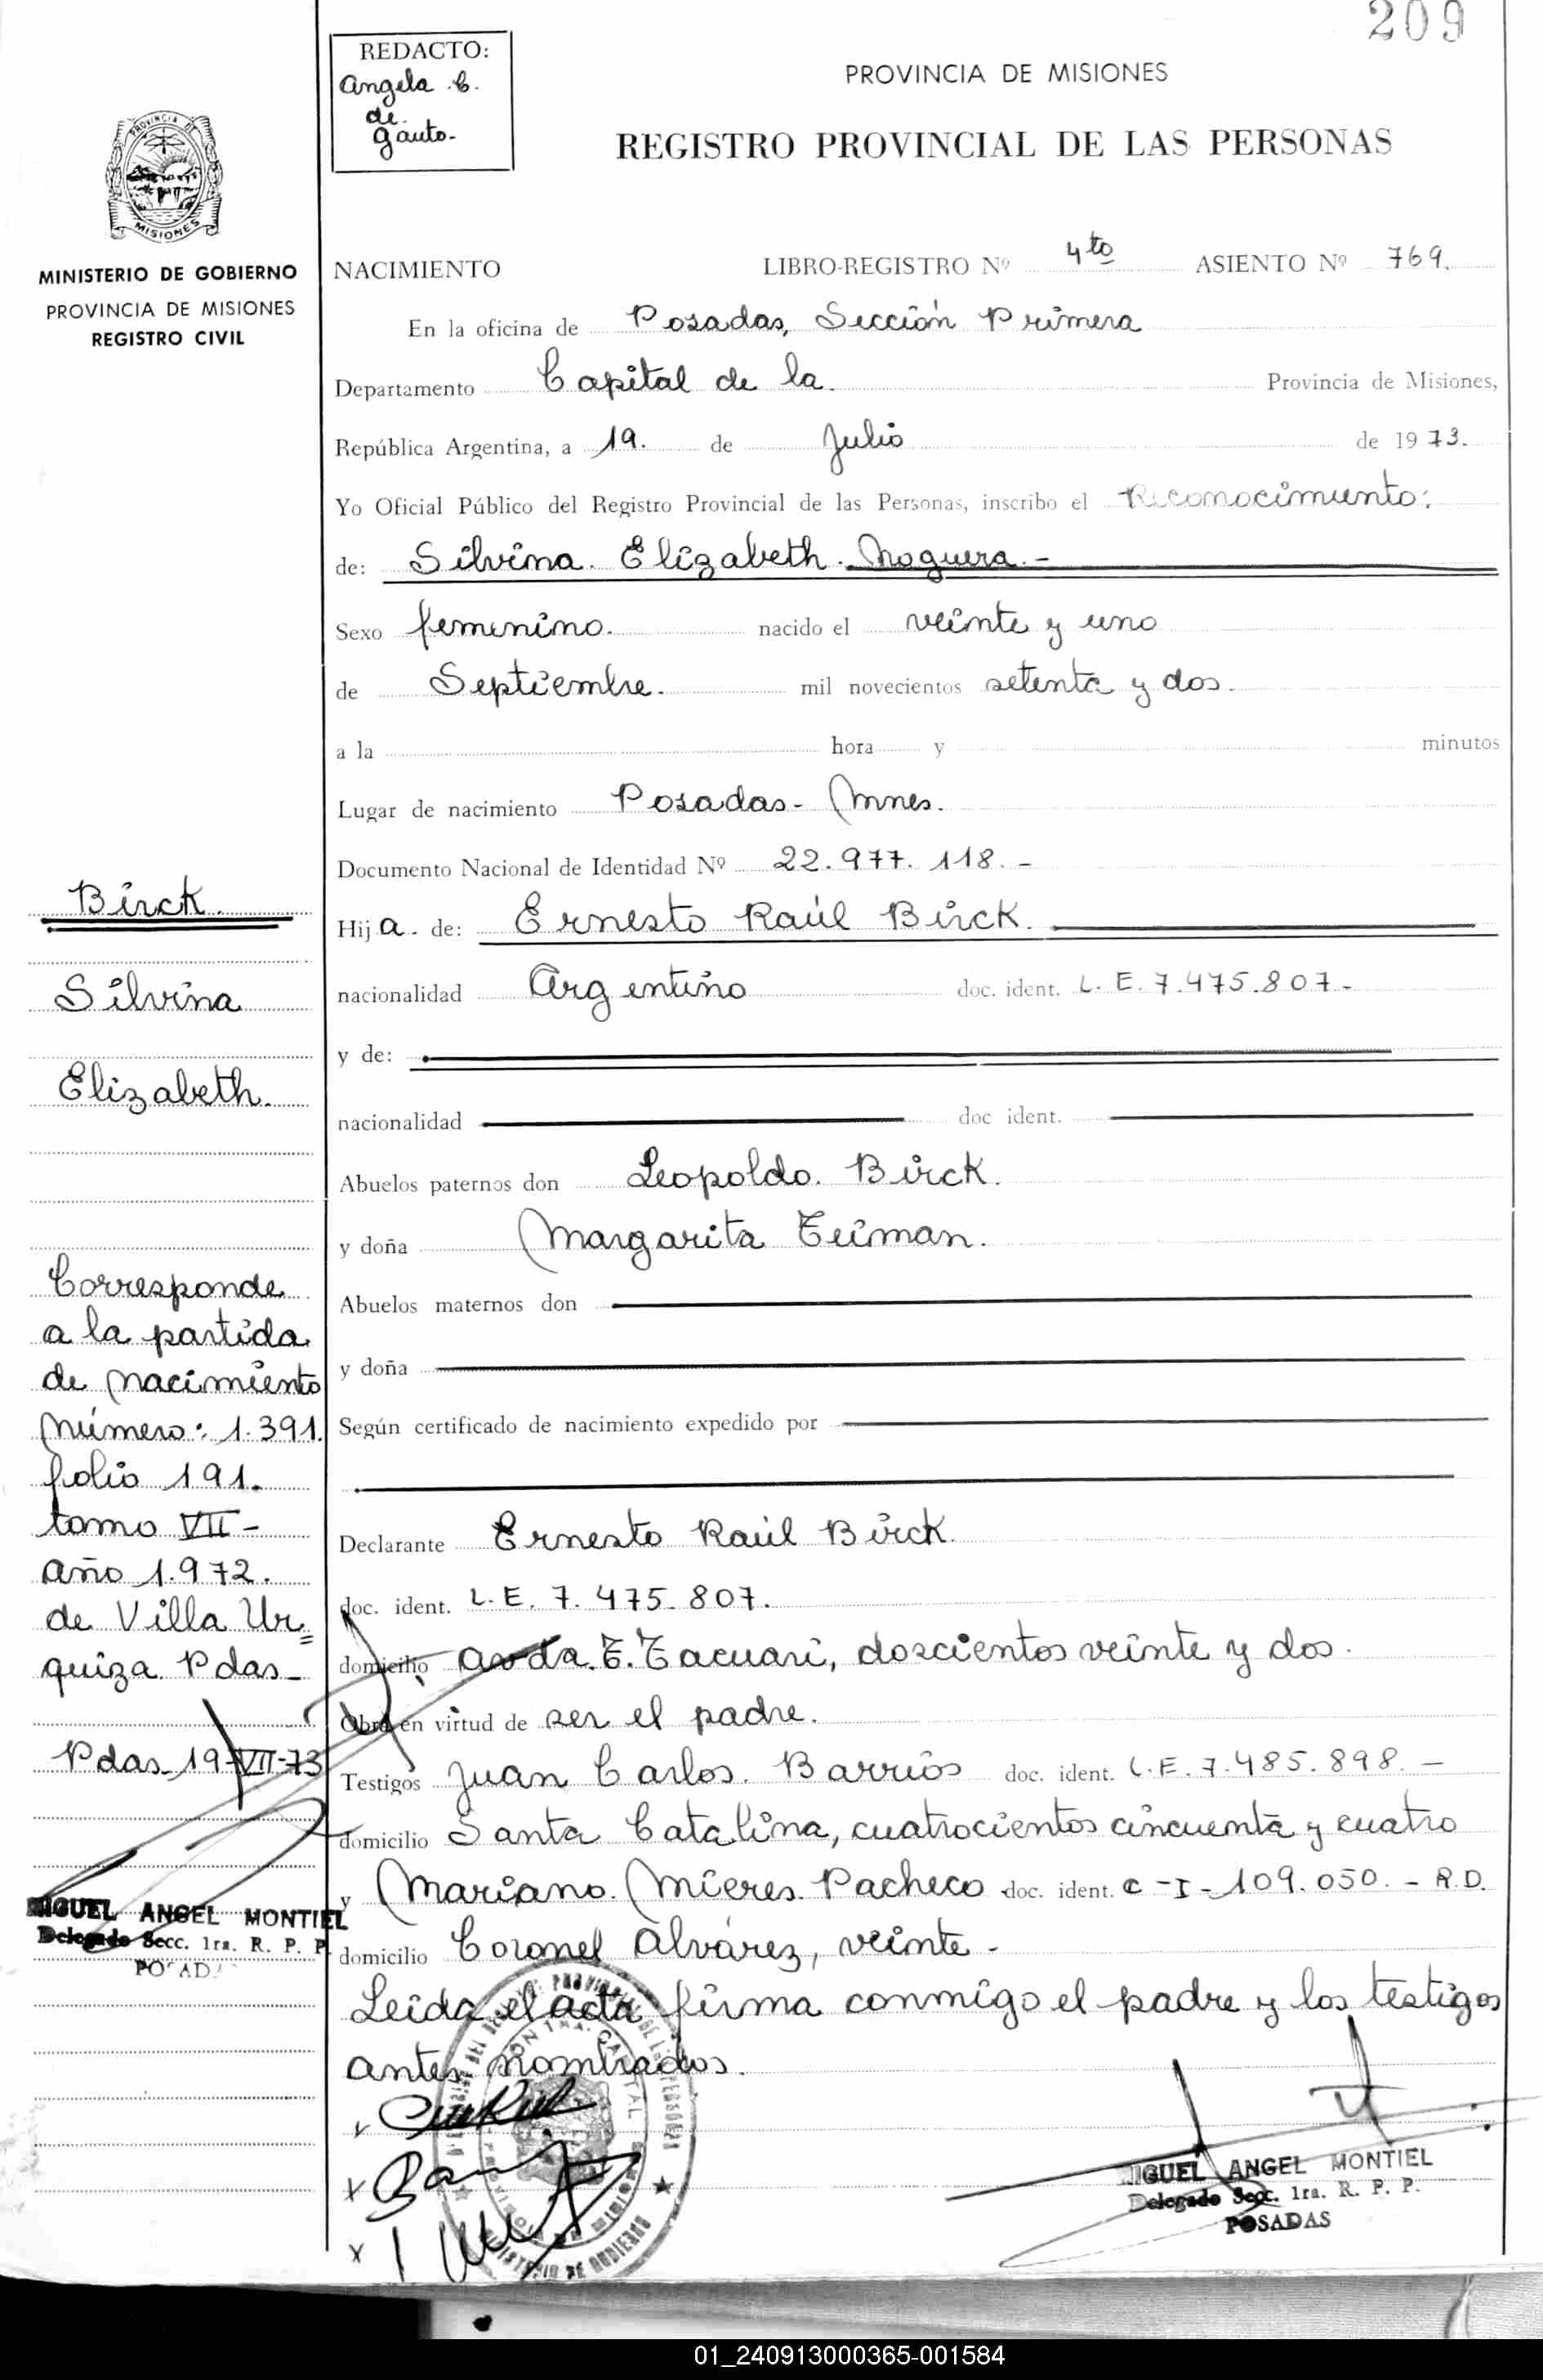 209
REDACTO:
Angela C.
de
Gauto-
PROVINCIA DE MISIONES
REGISTRO PROVINCIAL DE LAS PERSONAS
PROVINCIA DE
MISIONES
MINISTERIO DE GOBIERNO
PROVINCIA DE MISIONES
REGISTRO CIVIL
NACIMIENTO LIBRO-REGISTRO Nº 4to ASIENTO Nº 769.
En la oficina de Posadas, Sección Primera
Departamento Capital de la Provincia de Misiones,
República Argentina, a 19. de Julio de 1973.
Yo Oficial Público del Registro Provincial de las Personas, inscribo el Reconocimiento:
de: Silvina Elizabeth Noguera.-
Sexo femenino. nacido el veinte y uno
de Septiembre. mil novecientos setenta y dos.
a la hora y minutos
Lugar de nacimiento Posadas- Mnes.
Documento Nacional de Identidad Nº 22.977.118.-
Hija. de: Ernesto Raúl Birck.
nacionalidad Argentino doc. ident. L. E. 7.475.807-
y de:
nacionalidad doc ident.
Abuelos paternos don Leopoldo. Birck.
y doña Margarita Teiman.
Abuelos maternos don
y doña
Según certificado de nacimiento expedido por
Declarante Ernesto Raúl Birck.
doc. ident. L. E. 7.475.807.
domicilio Avda. T. Tacuari, doscientos veinte y dos.
Obra en virtud de ser el padre.
Testigos Juan Carlos. Barrios doc. ident. L.E. 7.485.898.-
domicilio Santa Catalina, cuatrocientos cincuenta y cuatro
y Mariano. Mieres. Pacheco doc. ident. C-I-109.050.- R.D.
domicilio Coronel Alvárez, veinte-
Leida el acta firma conmigo el padre y los testigos
antes nombrados.
Birck
Silvina
Elizabeth.
Corresponde
a la partida
de nacimiento
número: 1.391.
folio 191.
tomo VII-
año 1.972.
de Villa Ur=
quiza Pdas-
Pdas-19-VII-73
MIGUEL ANGEL MONTIEL
Delegado Secc. 1ra. R. P. P.
POSADAS
MIGUEL ANGEL MONTIEL
Delegado Secc. 1ra. R. P. P.
POSADAS
01_240913000365-001584